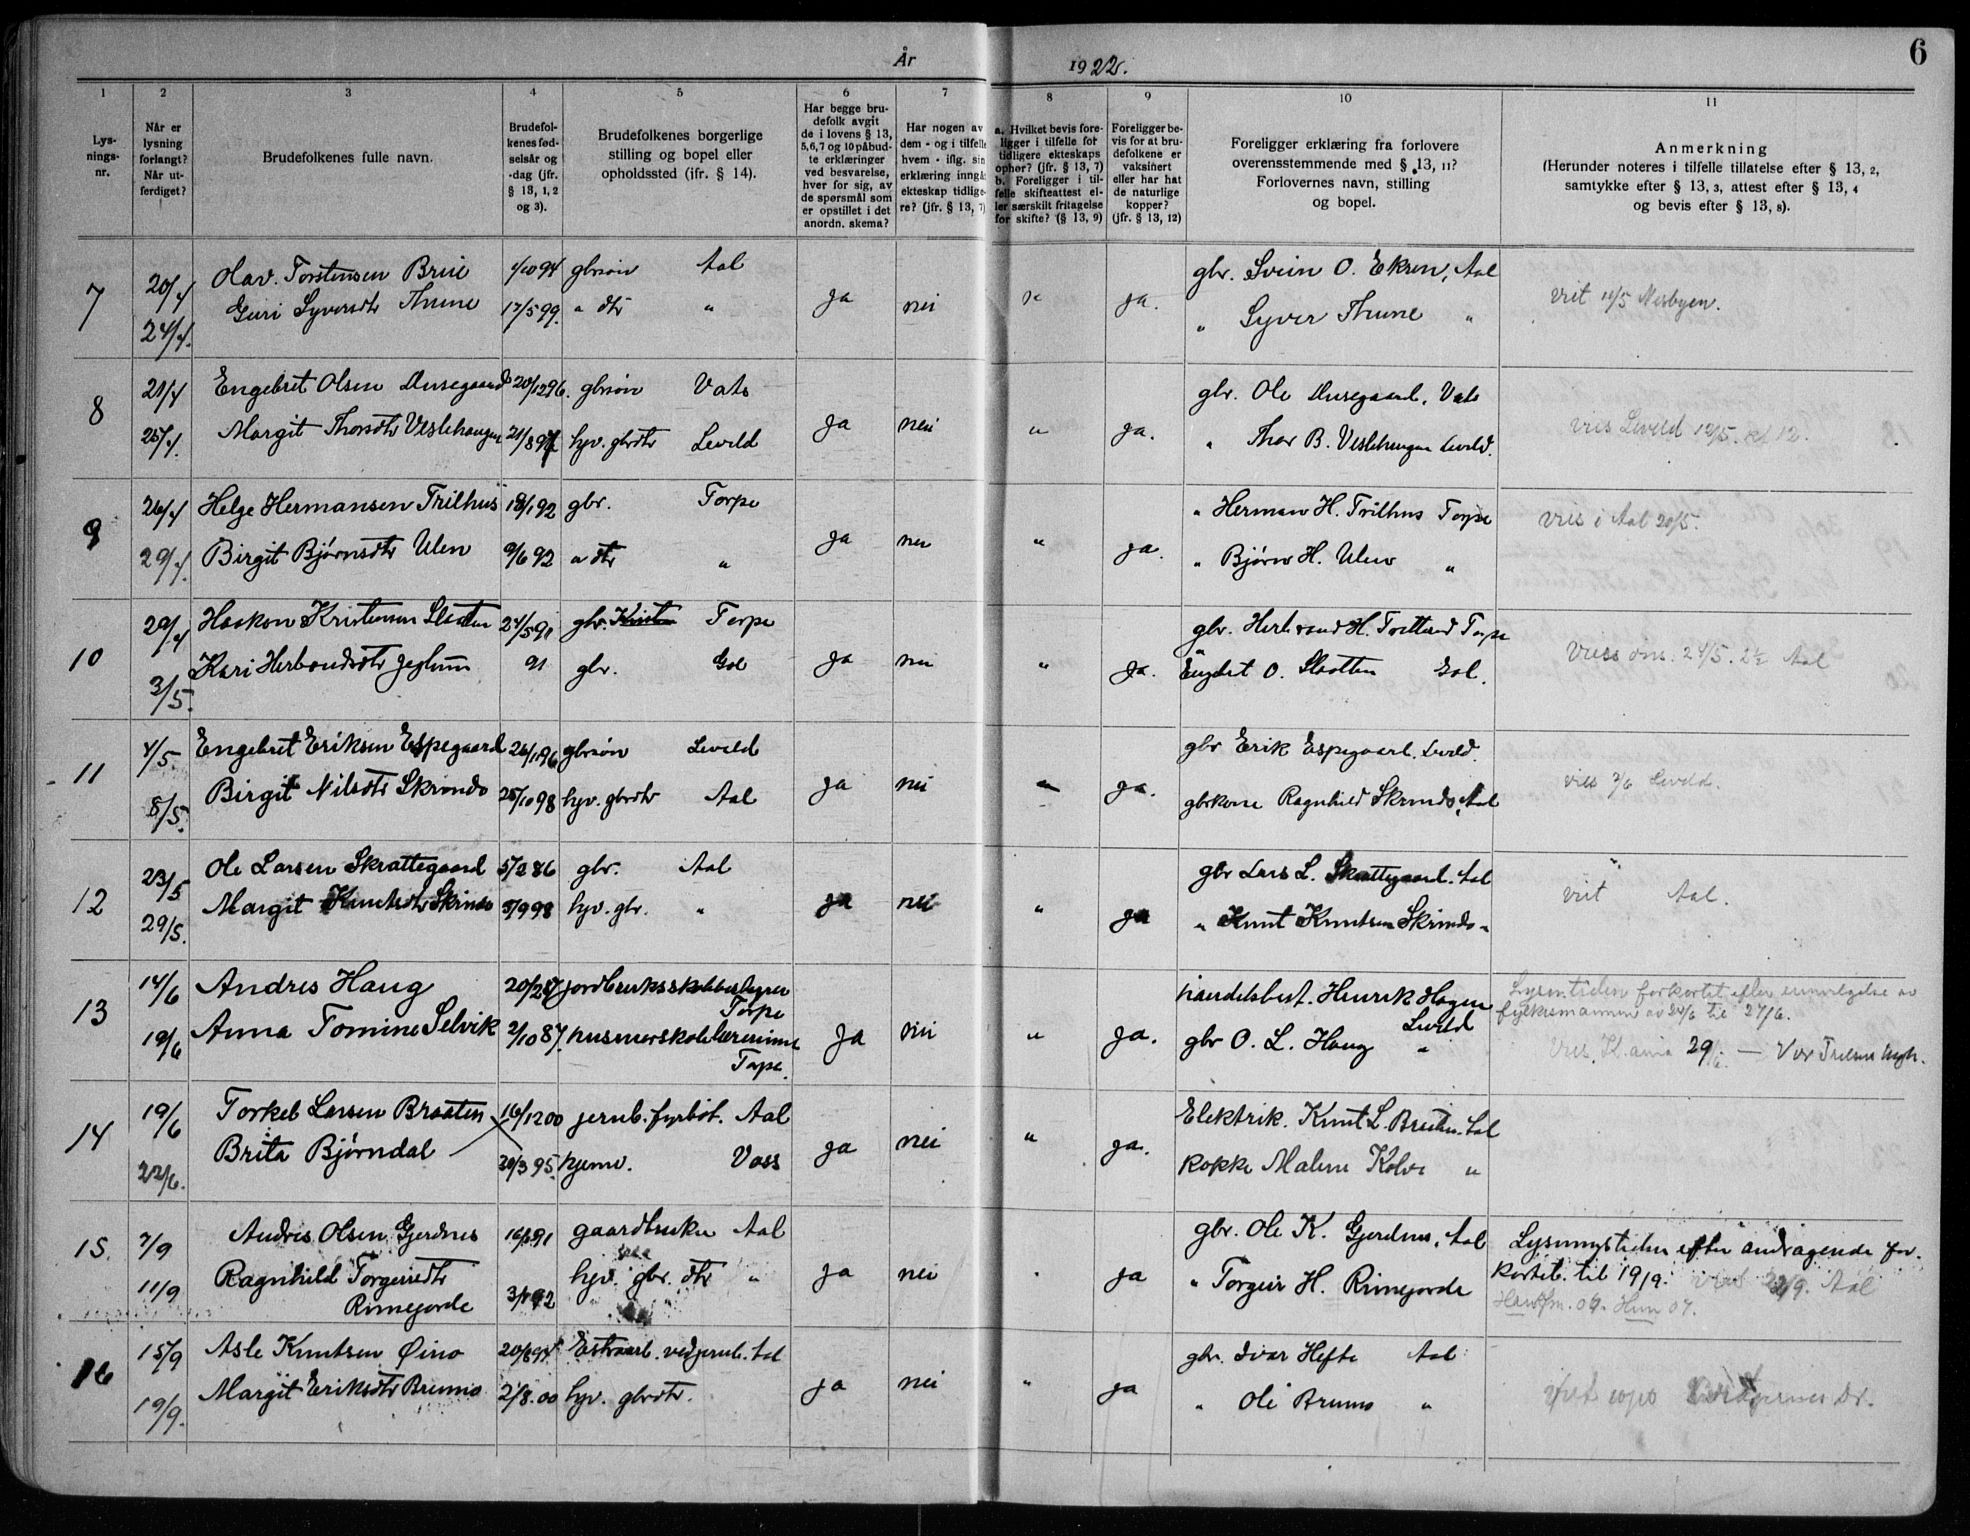 År 1922. 6
1 2 3 4 5 6 7 8 9 10 11
Lys-
nings-
nr.
Når er
lysning
forlangt?
Når ut-
ferdiget?
Brudefolkenes fulle navn.
Brudefol-
kenes fød-
selsår og
-dag (jfr.
§ 13, 1, 2
og 3).
Brudefolkenes borgerlige
stilling og bopel eller
opholdssted (ifr. § 14).
Har begge bru-
defolk avgit
de i lovens § 13,
5,6,7 og 10 påbud-
te erklæringer
ved besvarelse,
hver for sig, av
de spørsmål som
er opstillet i det
anordn. skema?
Har nogen av
dem - og i tilfelle
hvem - iflg. sin
erklæring inngåt
ekteskap tidlige-
re? (jfr. § 13, 7)
a. Hvilket bevis fore-
ligger i tilfelle for
tidligere ekteskaps
ophør? (jfr. § 13, 7)
b. Foreligger i til-
felle skifteattest el-
ler særskilt fritagelse
for skifte? (§ 13, 9)
Foreligger be-
vis for at bru-
defolkene er
vaksinert
eller har hat
de naturlige
kopper?
(jfr. § 13, 12)
Foreligger erklæring fra forlovere
overensstemmende med § 13, 11?
Forlovernes navn, stilling
og bopel.
Anmerkning
(Herunder noteres i tilfelle tillatelse efter § 13, 2,
samtykke efter § 13, 3, attest efter § 13, 4
og bevis efter § 13, 8).
7 20/4 Olav Torstensen Brue 4/10 94 gbrsøn Aal gbr. Svein O. Ekren, Aal
24/4. Guri Syversdtr Thune 17/5 99. " dtr " ja nei " ja. " Syver Thune " viet 12/5 Nesbyen.
8 21/4 Engebret Olsen 20/12 96. gbrsøn Vats gbr. Ole Vats
25/4. Margit Thorsdtr Veslehaugen 21/8 97 hjv. gbrdtr Leveld ja nei " ja. " Thor B. Veslehaugen Leveld. vies Leveld 12/5. kl 12.
9 26/4 Helge Hermansen Trilhus 18/1 92 gbr. Torpe " Herman H. Trilhus Torpe
29/4. Birgit Bjørnsdtr Ulen 9/6 92 " dtr " ja nei " ja. " Bjørn H. Ulen " vies i Aal 20/5.
10 29/4 Haakon Kristensen Slaatten 24/5 91 gbr. Torpe gbr. Herbrand H. Torpe
3/5. Kari Herbrandsdtr Jeglum 91 gbr. Gol ja nei " ja. Engebret O. Slaatten Gol. vies ons. 24/5. 2½ Aal
11 4/5 Engebret Eriksen Espegaard 26/11 96 gbrsøn Leveld gbr Erik Espegaard. Leveld.
8/5. Birgit Nilsdtr Skrindo 25/10 98 hjv. gbrdtr Aal ja nei " ja. gbrkone Ragnhild Skrindo, Aal vies 2/6 Leveld.
12 23/5 Ole Larsen Skrattegaard 5/2 86 gbr. Aal gbr Lars L. Skrattegaard. Aal
29/5. Margit Knutsdtr Skrindo 5/9 98 hjv. gbr. " ja nei " ja " Knut Knutsen Skrindo " viet Aal.
13 14/6 Andres Haug 20/2 87 jordbruksskolebestyrer Torpe handelsbest. Henrik Hagen Leveld
19/6 Anna Tomine Selvik 2/10 87. husmorskolelærerinne Torpe. ja nei " ja. gbr O. L. Haug "
Lysn.tiden forkortet efter av
fylkesmannen av 24/6 til 27/6.
Vies Kr.ania 29/6 — Vor
14 19/6 Torkel Larsen Braaten 16/12 00 jernb. fyrbøt. Aal Elektrik. Knut L. Braaten. Aal
22/6. Brita Bjørndal 20/3 95. hjemv. Voss ja nei " ja. kokke Malene Kolve "
15. 7/9 Andris Olsen Gjerdnes 16/3 91 gaardbruker Aal gbr. Ole K. Gjerdnes, Aal
11/9 Ragnhild Torgeirsdtr Rimejorde 3/1 92 hjv. gbr. dtr " ja nei " ja " Torgeir H. Rimejorde
Lysningstiden efter andragende for-
kortet. til 19/9. viet 22/9. Aal
16 15/9 Asle Knutsen Øino 20/8 94 Estraarb. ved jernb. Aal gbr. Ivar Hefte Aal
19/9. Margit Eriksdtr Brunno 2/8. 00 hjv. gbrdtr. ja nei " ja " Ole Brunno " viet